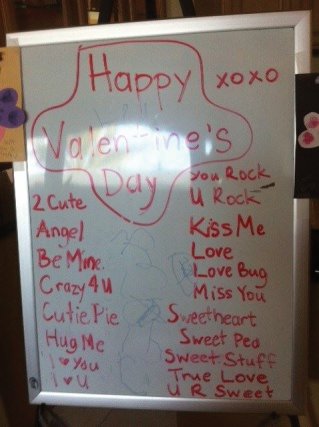 Happy
xoxo
Valentine's
Day
2 Cute
Angel
Be Mine
Crazy 4 U
Cutie Pie
Hug Me
I ♥ You
I ♥ U
you Rock
U Rock
Kiss Me
Love
Love Bug
Miss You
Sweetheart
Sweet Pea
Sweet Stuff
True Love
U R Sweet